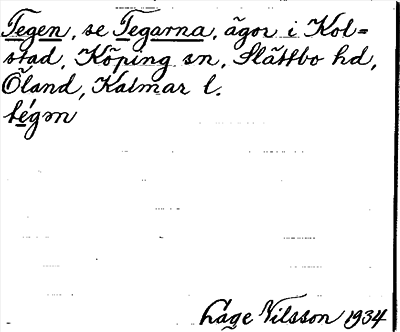 Tegen, se Tegarna, ägor i Kol=
stad, Köping sn, Slättbo hd,
Öland, Kalmar l.
té̀gən
Låge Nilsson 1934